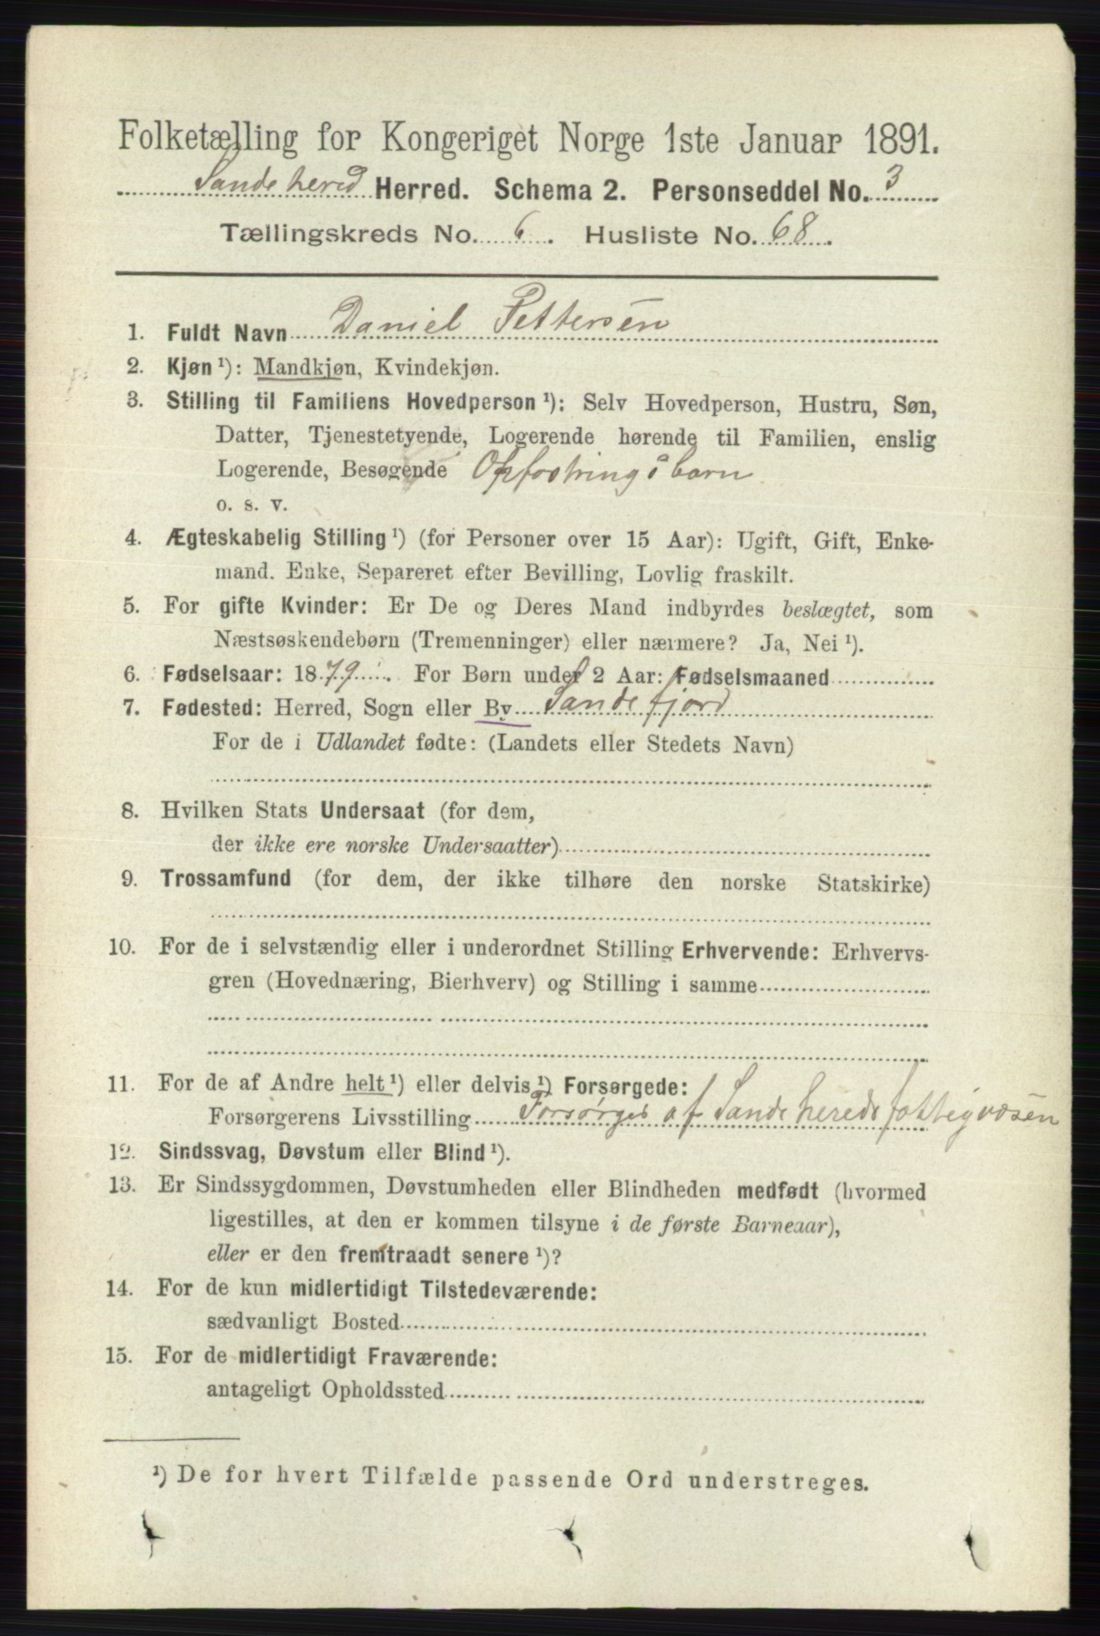 Folketælling for Kongeriget Norge 1ste Januar 1891.
Sandeherred Herred. Schema 2. Personseddel No. 3
Tællingskreds No. 6. Husliste No. 68.
1. Fuldt Navn Daniel Pettersen
2. Kjøn ¹): Mandkjøn, Kvindekjøn.
3. Stilling til Familiens Hovedperson ¹): Selv Hovedperson, Hustru, Søn,
Datter, Tjenestetyende, Logerende hørende til Familien, enslig
Logerende, Besøgende Opfostringsbarn
o. s. v.
4. Ægteskabelig Stilling ¹) (for Personer over 15 Aar): Ugift, Gift, Enke-
mand. Enke, Separeret efter Bevilling, Lovlig fraskilt.
5. For gifte Kvinder: Er De og Deres Mand indbyrdes beslægtet, som
Næstsøskendebørn (Tremenninger) eller nærmere? Ja, Nei ¹).
6. Fødselsaar: 1879. For Børn under 2 Aar: Fødselsmaaned
7. Fødested: Herred, Sogn eller By Sandefjord
For de i Udlandet fødte: (Landets eller Stedets Navn)
8. Hvilken Stats Undersaat (for dem,
der ikke ere norske Undersaatter)
9. Trossamfund (for dem, der ikke tilhøre den norske Statskirke)
10. For de i selvstændig eller i underordnet Stilling Erhvervende: Erhvervs-
gren (Hovednæring, Bierhverv) og Stilling i samme
11. For de af Andre helt ¹) eller delvis ¹) Forsørgede:
Forsørgerens Livsstilling Forsørges af Sandeherreds fattigvæsen
12. Sindssvag, Døvstum eller Blind ¹).
13. Er Sindssygdommen, Døvstumheden eller Blindheden medfødt (hvormed
ligestilles, at den er kommen tilsyne i de første Barneaar),
eller er den fremtraadt senere ¹)?
14. For de kun midlertidigt Tilstedeværende:
sædvanligt Bosted
15. For de midlertidigt Fraværende:
antageligt Opholdssted
¹) De for hvert Tilfælde passende Ord understreges.